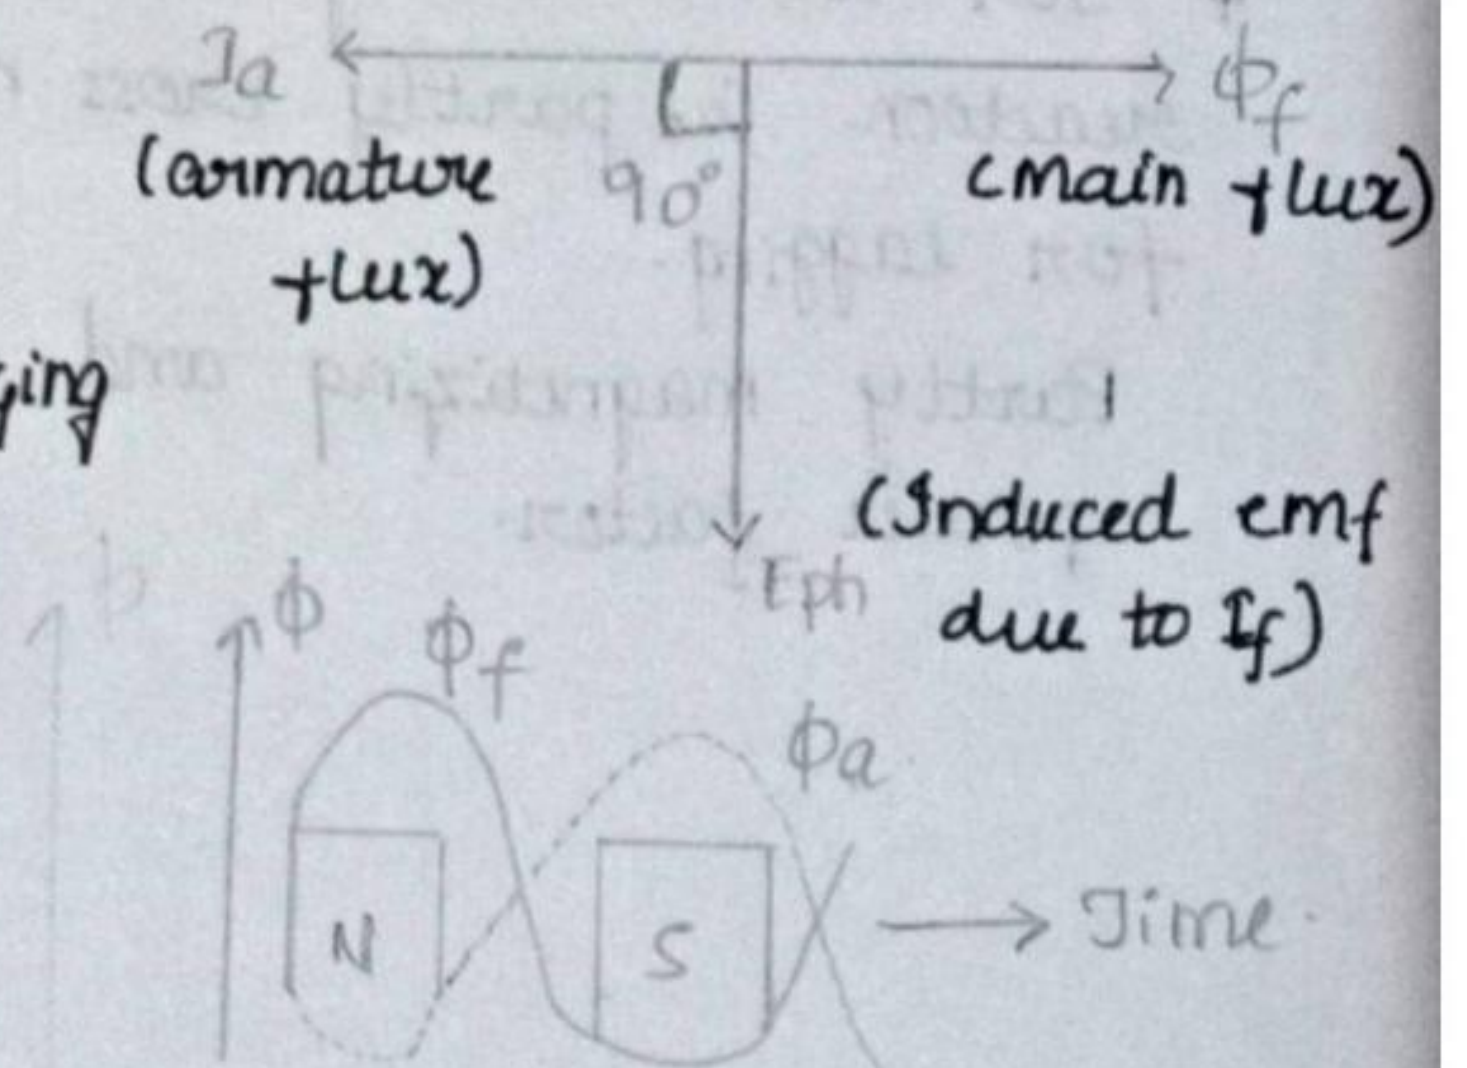 Ia
ϕf
(armature
flux)
90°
(Main flux)
ging
(Induced emf
due to If)
Eph
ϕ
ϕf
ϕa
N
S
Time